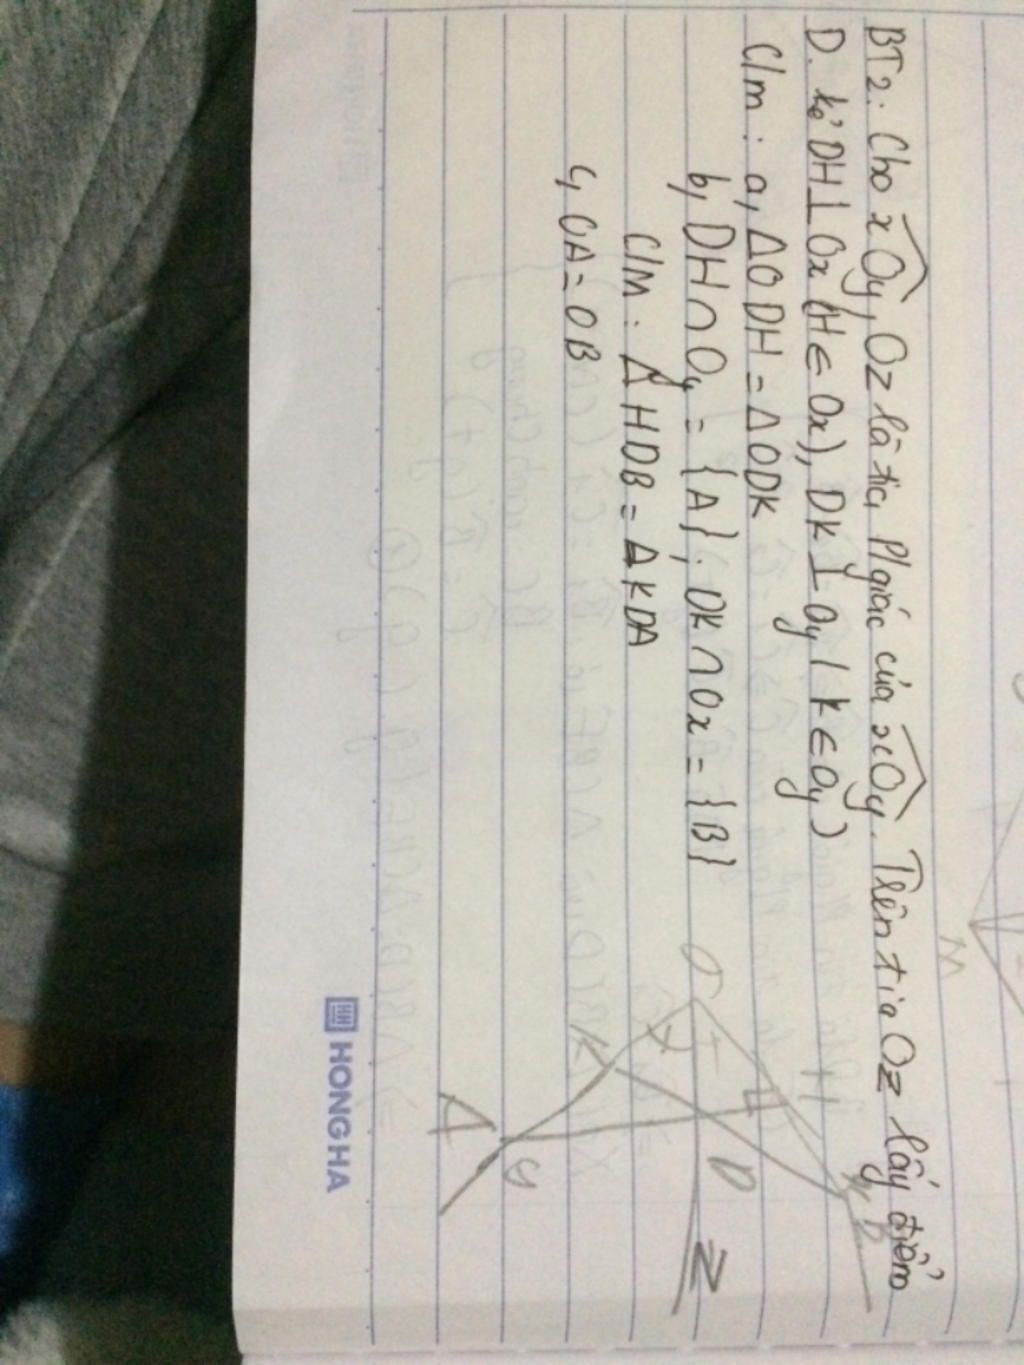 BT2. Cho xOy, Oz là tia P/giác của xOy. Trên tia Oz lấy điểm
D. kẻ DH⊥Ox (H∈Ox), DK⊥Oy (K∈Oy)
C/m: a, ΔODH = ΔODK
b, DH∩Oy = {A}; DK∩Ox = {B}
C/m: ΔHDB = ΔKDA
c, OA = OB
M
O
H
x B
K
D
z
A
y
HONG HA